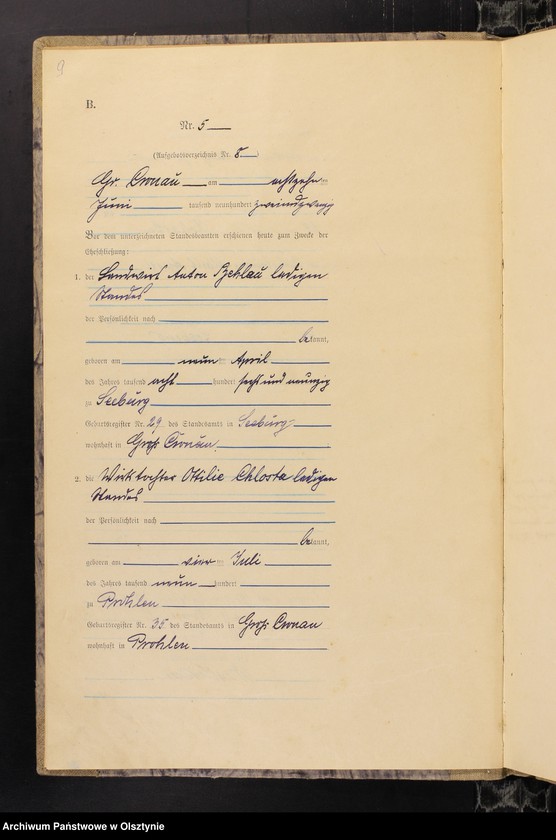 9
B.
Nr. 5
(Aufgebotsverzeichnis Nr. 8)
Gr. Cronau am achtzehn ten
Juni tausend neunhundert zweiundzwanzig
Vor dem unterzeichneten Standesbeamten erschienen heute zum Zwecke der
Eheschließung:
1. der Landwirt Anton ledigen
Standes
der Persönlichkeit nach
be kannt,
geboren am neun ten April
des Jahres tausend acht hundert sechs und neunzig
zu Seeburg
Geburtsregister Nr. 29 des Standesamts in Seeburg
wohnhaft in Groß Cronau
2. die Wirttochter Ottilie Chlosta ledigen
Standes
der Persönlichkeit nach
be kannt,
geboren am vier ten Juli
des Jahres tausend neun hundert
zu Prohlen
Geburtsregister Nr. 35 des Standesamts in Groß Cronau
wohnhaft in Prohlen
Archiwum Państwowe w Olsztynie